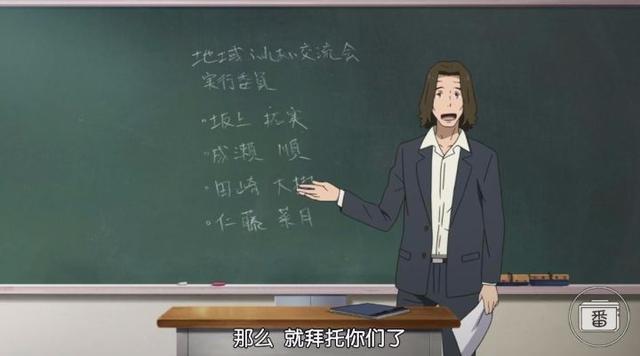 地域ふれあい交流会
実行委員
・坂上 拓実
・成瀬 順
・田崎 大樹
・仁藤 菜月
那么 就拜托你们了
番